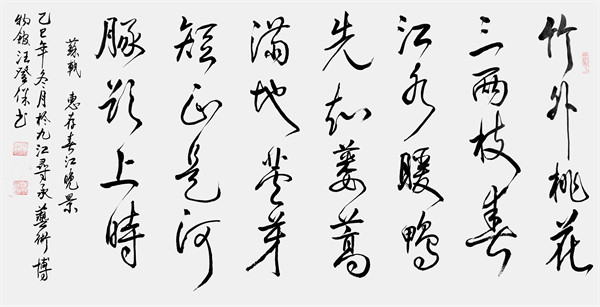 竹外桃花
三两枝春
江水暖鸭
先知蒌蒿
满地芦芽
短正是河
豚欲上時
蘇軾 惠崇春江晚景
乙巳年冬月於九江尋承藝術博
物館汪登保书